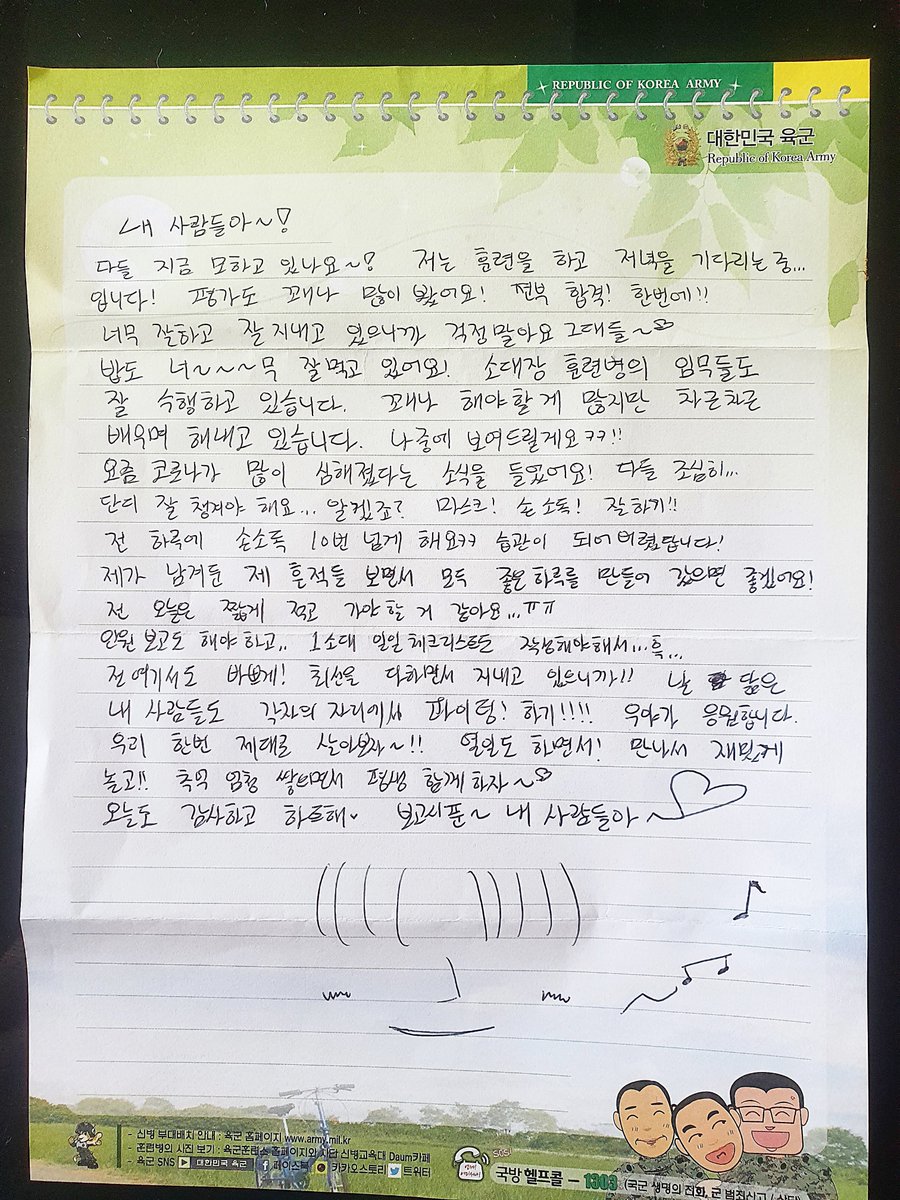 REPUBLIC OF KOREA ARMY
대한민국 육군
Republic of Korea Army
내 사람들아~!
다들 지금 모하고 있나요~? 저는 훈련을 하고 저녁을 기다리는 중...
입니다! 평가도 꽤나 많이 봤어요! 전부 합격! 한번에!!
너무 잘하고 잘 지내고 있으니까 걱정말아요 그대들~
밥도 너~~~무 잘먹고 있어요! 소대장 훈련병의 임무들도
잘 수행하고 있습니다. 꽤나 해야할게 많지만 차근차근
배우며 해내고 있습니다. 나중에 보여드릴게요ㅋㅋ!!
요즘 코로나가 많이 심해졌다는 소식을 들었어요! 다들 조심히...
단디 잘 챙겨야 해요... 알겠죠? 마스크! 손 소독! 잘하기!!
전 하루에 손소독 10번 넘게 해요ㅋㅋ 습관이 되어버렸답니다!
제가 남겨둔 제 흔적들 보면서 모두 좋은하루를 만들어 갔으면 좋겠어요!
전 오늘은 짧게 적고 가야할 거 같아요...ㅠㅠ
인원 보고도 해야하고.. 1소대 일일체크리스트도 작성해야해서...흑...
전 여기서도 바쁘게! 최선을 다하면서 지내고 있으니까!! 날 닮은
내 사람들도 각자의 자리에서 파이팅! 하기!!!! 우야가 응원합니다.
우리 한번 제대로 살아보자~!! 열일도 하면서! 만나서 재밌게
놀고!! 추억 엄청 쌓으면서 평생 함께하자~
오늘도 감사하고 하트해 보고시푼~ 내 사람들아~
- 신병 부대배치 안내 : 육군 홈페이지 www.army.mil.kr
- 훈련병의 사진 보기 : 육군훈련소 홈페이지와 사단 신병교육대 Daum카페
- 육군 SNS 대한민국 육군 페이스북 카카오스토리 트위터
SOS!
국방헬프콜 - 1303 (국군 생명의 전화, 군 범죄신고